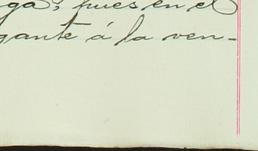 ga, pues en el
gante á la ven-